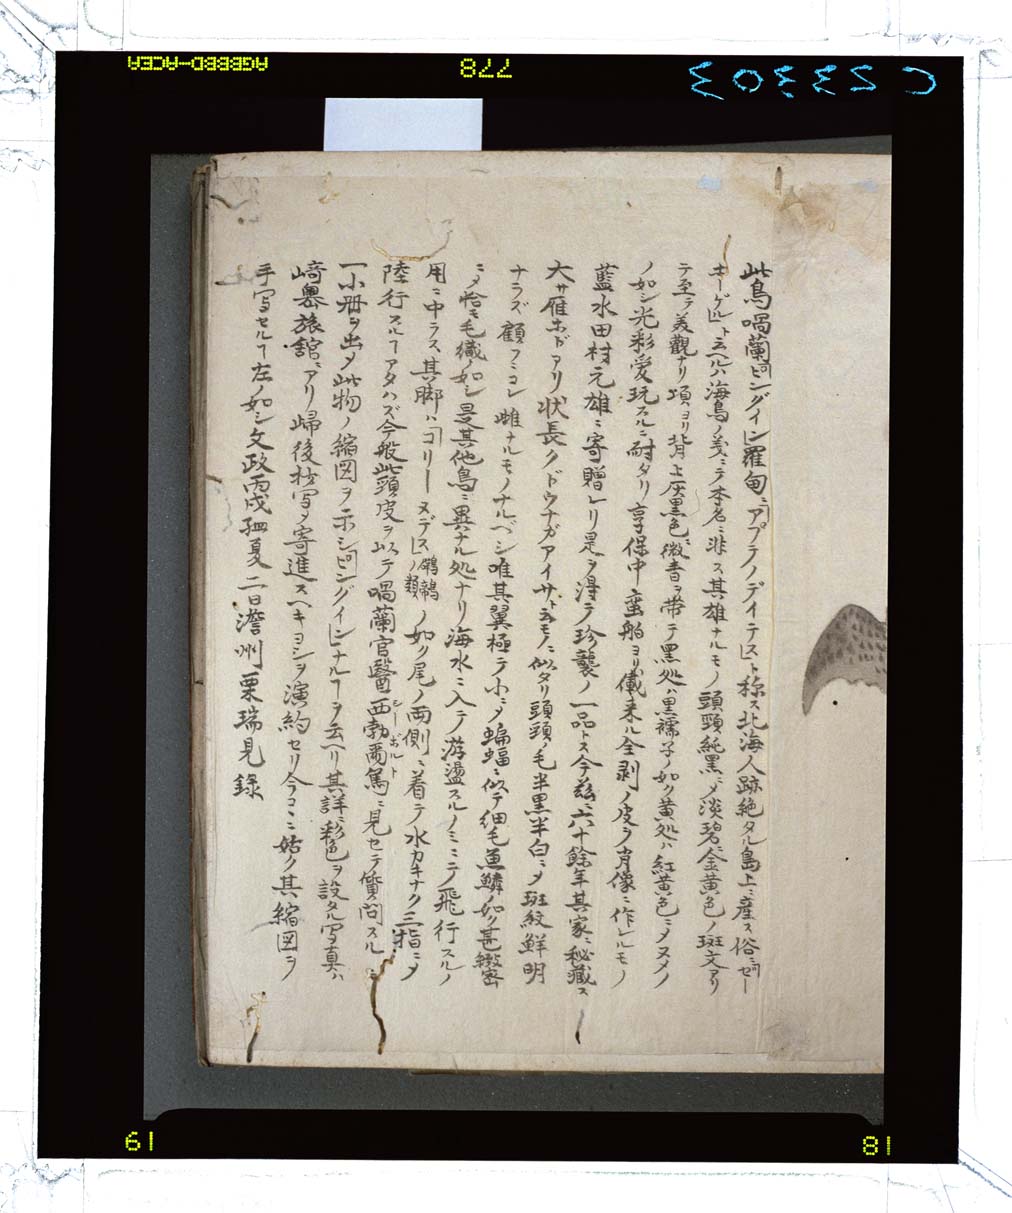 此鳥喎蘭ピングイン羅甸ニアプテノデイテスト称ス北海人跡絶タル島上ニ産ス俗ニゼー
ホーゲルト云ヘルハ海鳥ノ義ニテ本名ニ非ス其雄ナルモノ頭頸純黒ニメ淡碧ニ金黄色ノ斑文アリ
テ至テ美觀ナリ項ヨリ背上灰黒色ニ微青ヲ帯テ黒処ハ黒襦子ノ如ク黄処ハ紅黄色ニメヌメノ
ノ如シ光彩愛玩スルニ耐タリ享保中蛮舶ヨリ儎来ル全剥ノ皮ヲ肖像ニ作レルモノ
藍水田村元雄ニ寄贈レリ是ヲ得テ珍襲ノ一品トス今茲ニ六十餘年其家ニ秘藏ス
大サ雁ホドアリ状長クドウナガアイサト云モノニ似タリ頭頸ノ毛半黒半白ニメ斑紋鮮明
ナラズ顧フニコレ雌ナルモノナルベシ唯其翼極テ小ニメ蝙蝠ニ似テ細毛魚鱗ノ如ク甚緻密
ニメ恰モ毛織ノ如シ是其他鳥ニ異ナル処ナリ海水ニ入テ游盪スルノミニテ飛行スルノ
用ニ中ラス其脚ハコリーヌデス鵜鶘ノ類ノ如ク尾ノ両側ニ着テ水カキナク三指ニメ
陸行スルヿアタハズ今般此頭皮ヲ以テ喎蘭官醫西勃爾篤シーボルトニ見セテ質問スルニ
一小冊ヲ出メ此物ノ縮図ヲ示シピングインナルヿヲ云ヘリ其詳ニ彩色ヲ設タル写真ハ
﨑嶴旅舘ニアリ歸後抄写メ寄進スヘキヨシヲ演約セリ今コヽニ姑ク其縮図ヲ
手写セルヿ左ノ如シ文政丙戌孟夏二日澹州栗瑞見錄
C23303
778
19
18